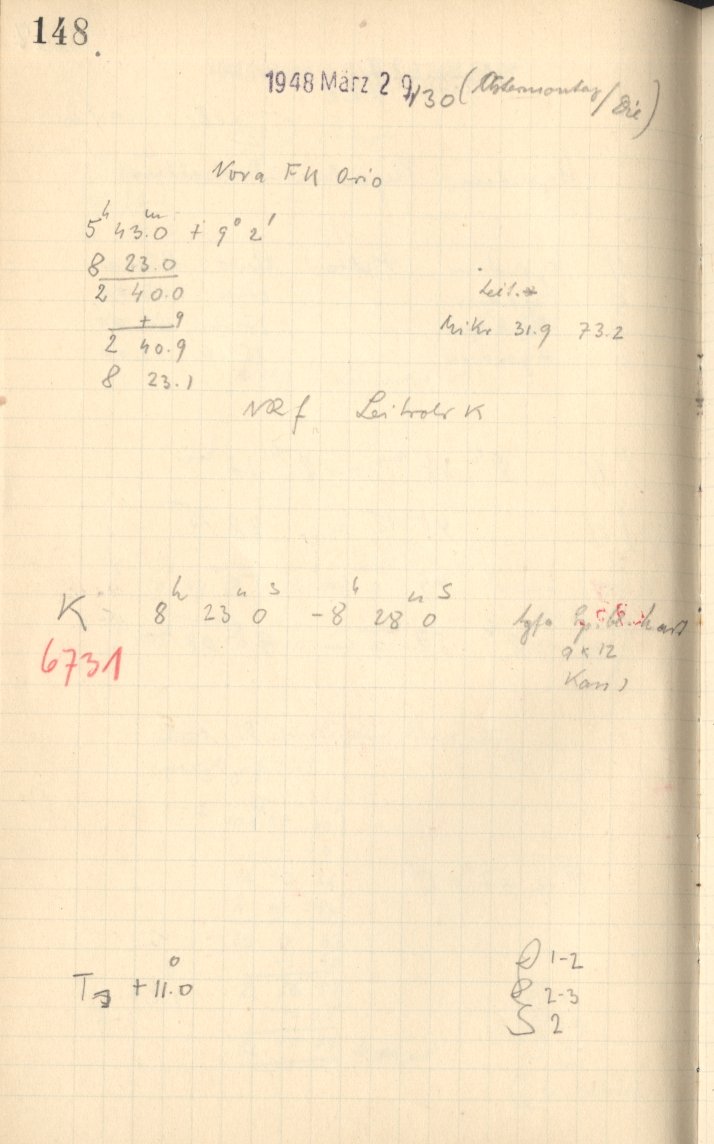 148
1948 März 29/30 (Ostermontag/Die)
Nova FU Orio
5h 43.m0 + 9° 2'
8 23.0
2 40.0
+ 9
2 40.9
8 23.1
Leit.*
Mikr 31.9 73.2
NRf Leitrohr K
K 8h 23m 0s - 8h 28m 0s Agfa hart
6731
9 x 12
T +11.0°
Q 1-2
R 2-3
S 2